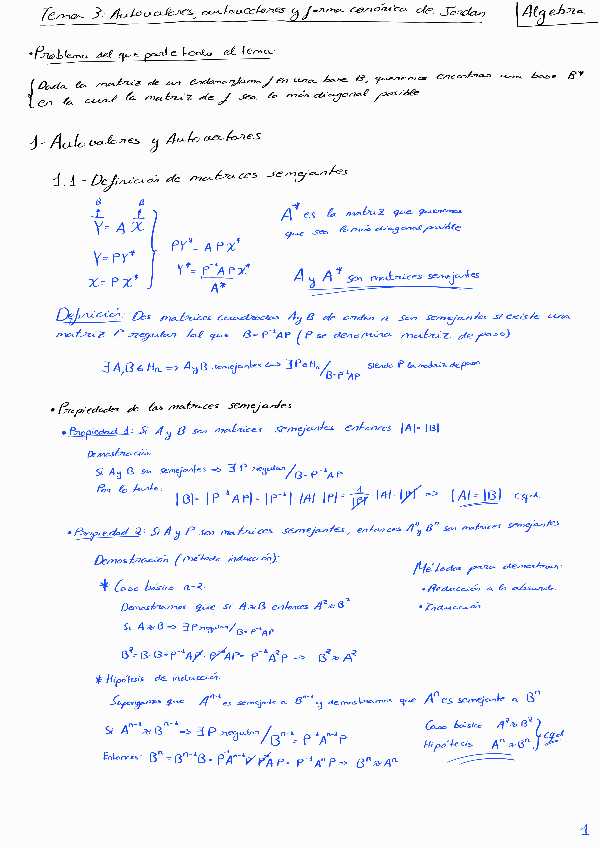 Tema 3: Autovalores, autovectores y forma canónica de Jordan
Algebra
• Problema del que parte todo el tema:
Dada la matriz de un endomorfismo f en una base B, queremos encontrar una base B*
en la cual la matriz de f sea lo más diagonal posible
1- Autovalores y Autovectores
1.1 - Definición de matrices semejantes
B B
↑ ↑
Y = A X
Y = PY*
X = P X*
PY* = A P X*
Y* = P⁻¹A P X*
A*
A* es la matriz que queremos
que sea lo más diagonal posible
A y A* son matrices semejantes
Definición: Dos matrices cuadradas A y B de orden n son semejantes si existe una
matriz P regular tal que B = P⁻¹AP (P se denomina matriz de paso)
∃ A, B ∈ Mn => A y B semejantes <=> ∃ P ∈ Mn / B = P⁻¹AP siendo P la matriz de paso
• Propiedades de las matrices semejantes
• Propiedad 1: Si A y B son matrices semejantes entonces |A| = |B|
Demostración:
Si A y B son semejantes => ∃ P regular / B = P⁻¹AP
Por lo tanto:
|B| = |P⁻¹AP| = |P⁻¹| |A| |P| = 1/|P| |A| · |P| => |A| = |B| c.q.d.
• Propiedad 2: Si A y P son matrices semejantes, entonces Aⁿ y Bⁿ son matrices semejantes
Demostración (método inducción):
Métodos para demostrar:
• Reducción a lo absurdo.
• Inducción
* Caso básico n=2:
Demostramos que si A≈B entonces A²≈B²
Si A≈B => ∃ P regular / B = P⁻¹AP
B² = B·B = P⁻¹AP · P⁻¹AP = P⁻¹A²P -> B²≈A²
* Hipótesis de inducción:
Supongamos que Aⁿ⁻¹ es semejante a Bⁿ⁻¹ y demostramos que Aⁿ es semejante a Bⁿ
Si Aⁿ⁻¹≈Bⁿ⁻¹ => ∃ P regular / Bⁿ⁻¹ = P⁻¹Aⁿ⁻¹P
Entonces: Bⁿ = Bⁿ⁻¹B = P⁻¹Aⁿ⁻¹P P⁻¹AP = P⁻¹AⁿP => Bⁿ≈Aⁿ
Caso básico A²≈B²
Hipótesis Aⁿ≈Bⁿ
cqd
1